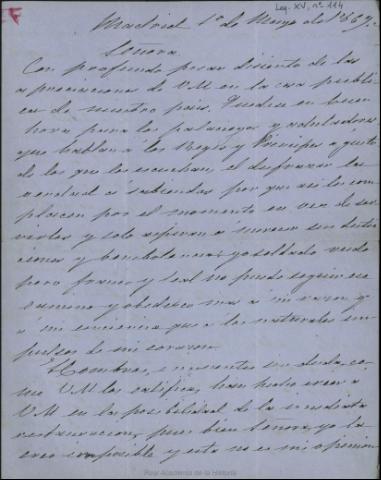 Leg. XV, nº 114
Madrid 1º de Mayo de 1869.
Señora
Con profundo pesar disiento de las
apreciaciones de V.M. en la cosa públi
ca de nuestro pais. Quedese en buen
hora para los palaciegos y aduladores
que hablan a los Reyes y Principes a gusto
de los que los escuchan el disfrazar la
verdad a sabiendas por que asi los com
placen por el momento en vez de ser
virlos y solo aspiran a merecer sus distin
ciones y benevolencias; yo soldado rudo
pero franco y leal no puedo seguir ese
camino y obedezco mas a mi razon y
a mi conciencia que a los naturales im
pulsos de mi corazon.
Hombres, inocentes sin duda, co
mo V.M. los califica, han hecho creer a
V.M. en la posibilidad de la inmediata
restauracion, pues bien Señora, yo la
creo imposible y esta no es mi opinion
Real Academia de la Historia